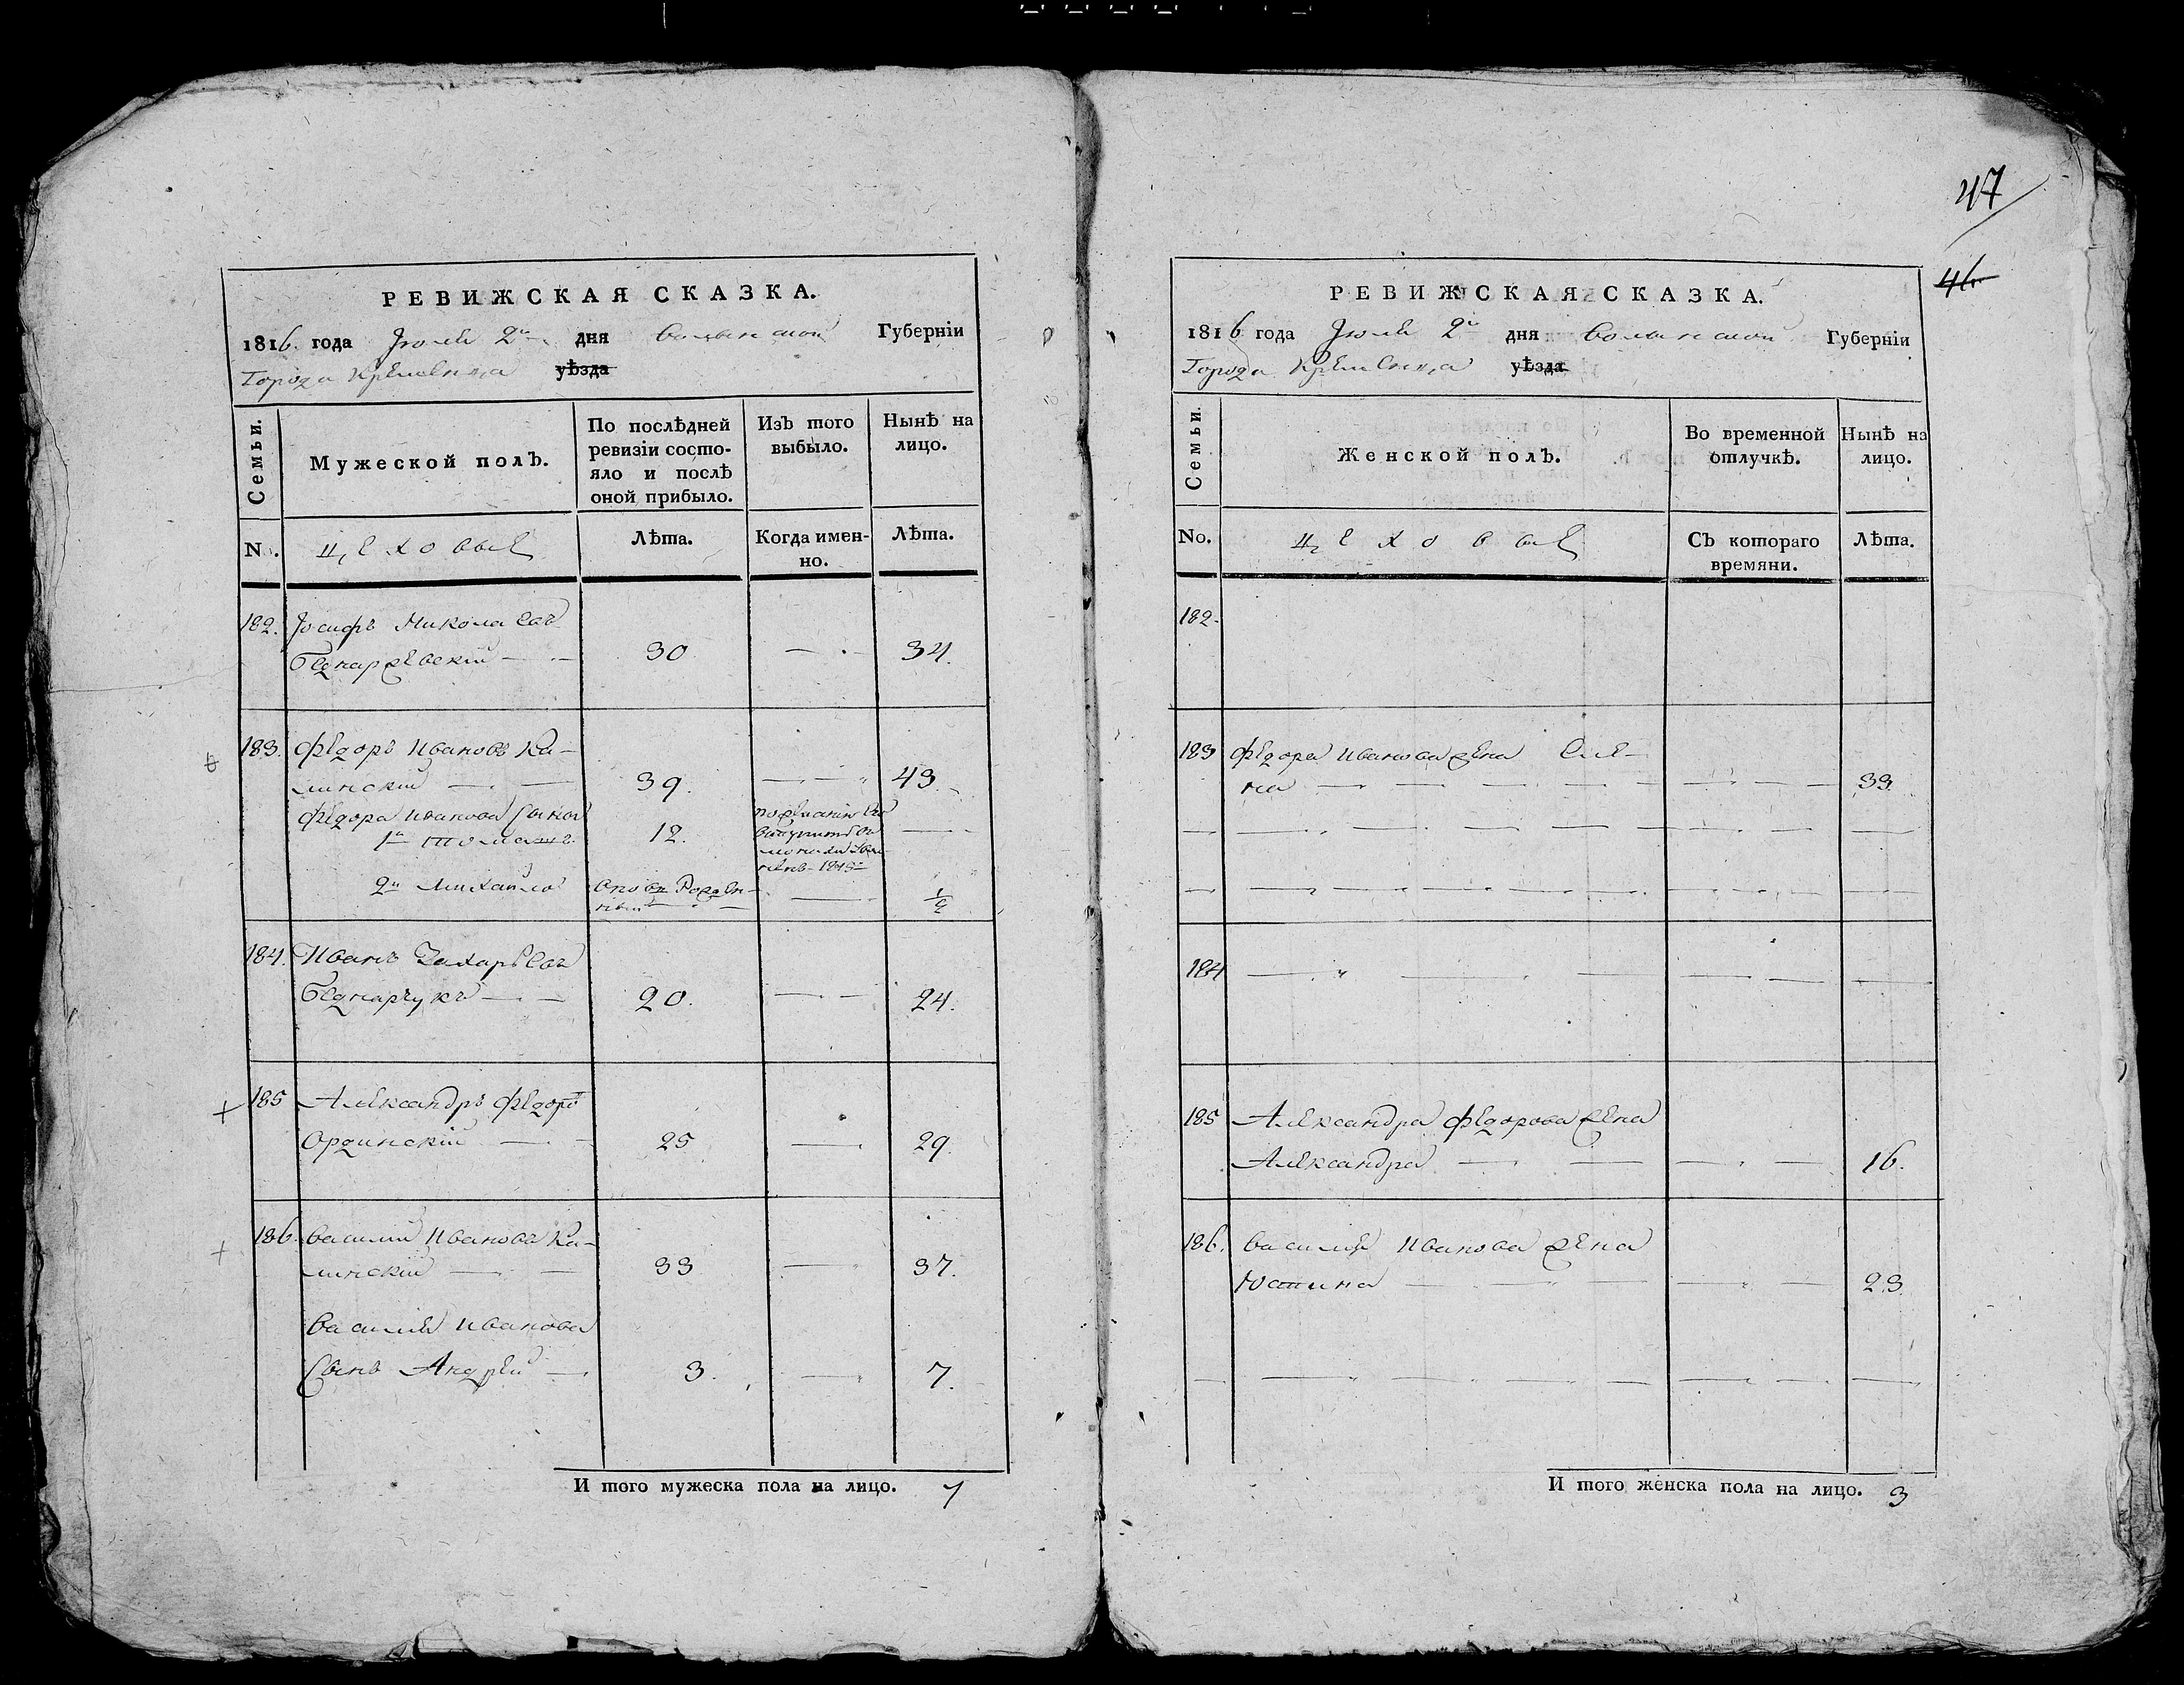 РЕВИЖСКАЯ СКАЗКА.
1816. года Июля 2го дня Волынской Губерніи
Города Кременца уѣзда
Семьи.
Мужеской полъ.
По послѣдней ревизіи состо-
яло и послѣ
оной прибыло.
Изъ того
выбыло.
Нынѣ на
лицо.
No.
цеховые
Лѣта.
Когда имен-
но.
Лѣта.
182. Іосифъ Миколаевъ
Беднаржевскій 30 34.
183. Федоръ Ивановъ Ка-
линский 39. 43.
Федора Иванова сынов
1й Томашъ 12.
1815
2й Михайло вновь рожден-
ный 1/2
184. Иванъ Захарьевъ
Беднарчукъ 20. 24.
185 Александръ Федоров
Ординскій 25 29.
186. Василий Ивановъ Ка-
линский 33 37.
Василия Иванова
Сынъ Андрей 3. 7.
И того мужеска пола на лицо. 7
47
46
РЕВИЖСКАЯ СКАЗКА.
1816 года Июля 2го дня Волынской Губерніи
Города Кременца уѣзда
Семьи.
Женской полъ.
Во временной
отлучкѣ.
Нынѣ на
лицо.
No.
цеховые
Съ котораго
времяни.
Лѣта.
182.
183 Федора Иванова жена Еле-
на 33.
184
185 Александра Федорова жена
Александра 16.
186. Василия Иванова жена
Юстина 23.
И того женска пола на лицо. 3